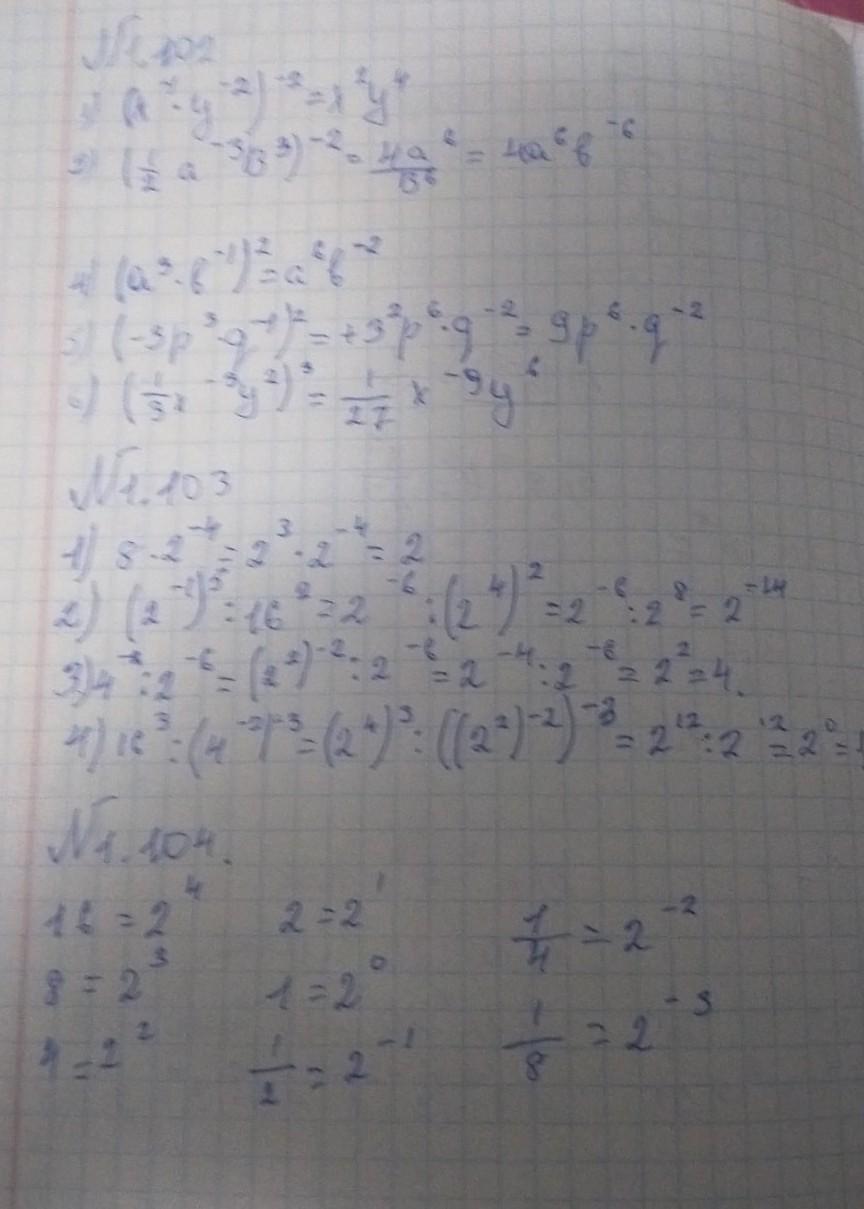 №1.102
1) (x⁻¹·y⁻²)⁻²=x²y⁴
2) (1/2 a⁻³b³)⁻²=4a⁶/b⁶=4a⁶b⁻⁶
4) (a³·b⁻¹)²=a⁶b⁻²
5) (-3p³·q⁻¹)²=+3²p⁶·q⁻²=9p⁶·q⁻²
6) (1/3 x⁻³y²)³=1/27 x⁻⁹y⁶
№1.103
1) 8·2⁻⁴=2³·2⁻⁴=2
2) (2⁻¹) :16²=2⁻⁶:(2⁴)²=2⁻⁶:2⁸=2⁻¹⁴
3) 4⁻²:2⁻⁶=(2²)⁻²:2⁻⁶=2⁻⁴:2⁻⁶=2²=4.
4) 16³:(4⁻²)⁻³=(2⁴)³:((2²)⁻²)⁻³=2¹²:2¹²=2⁰=1
№1.104.
16=2⁴ 2=2¹ 1/4=2⁻²
8=2³ 1=2⁰ 1/8=2⁻³
4=2² 1/2=2⁻¹